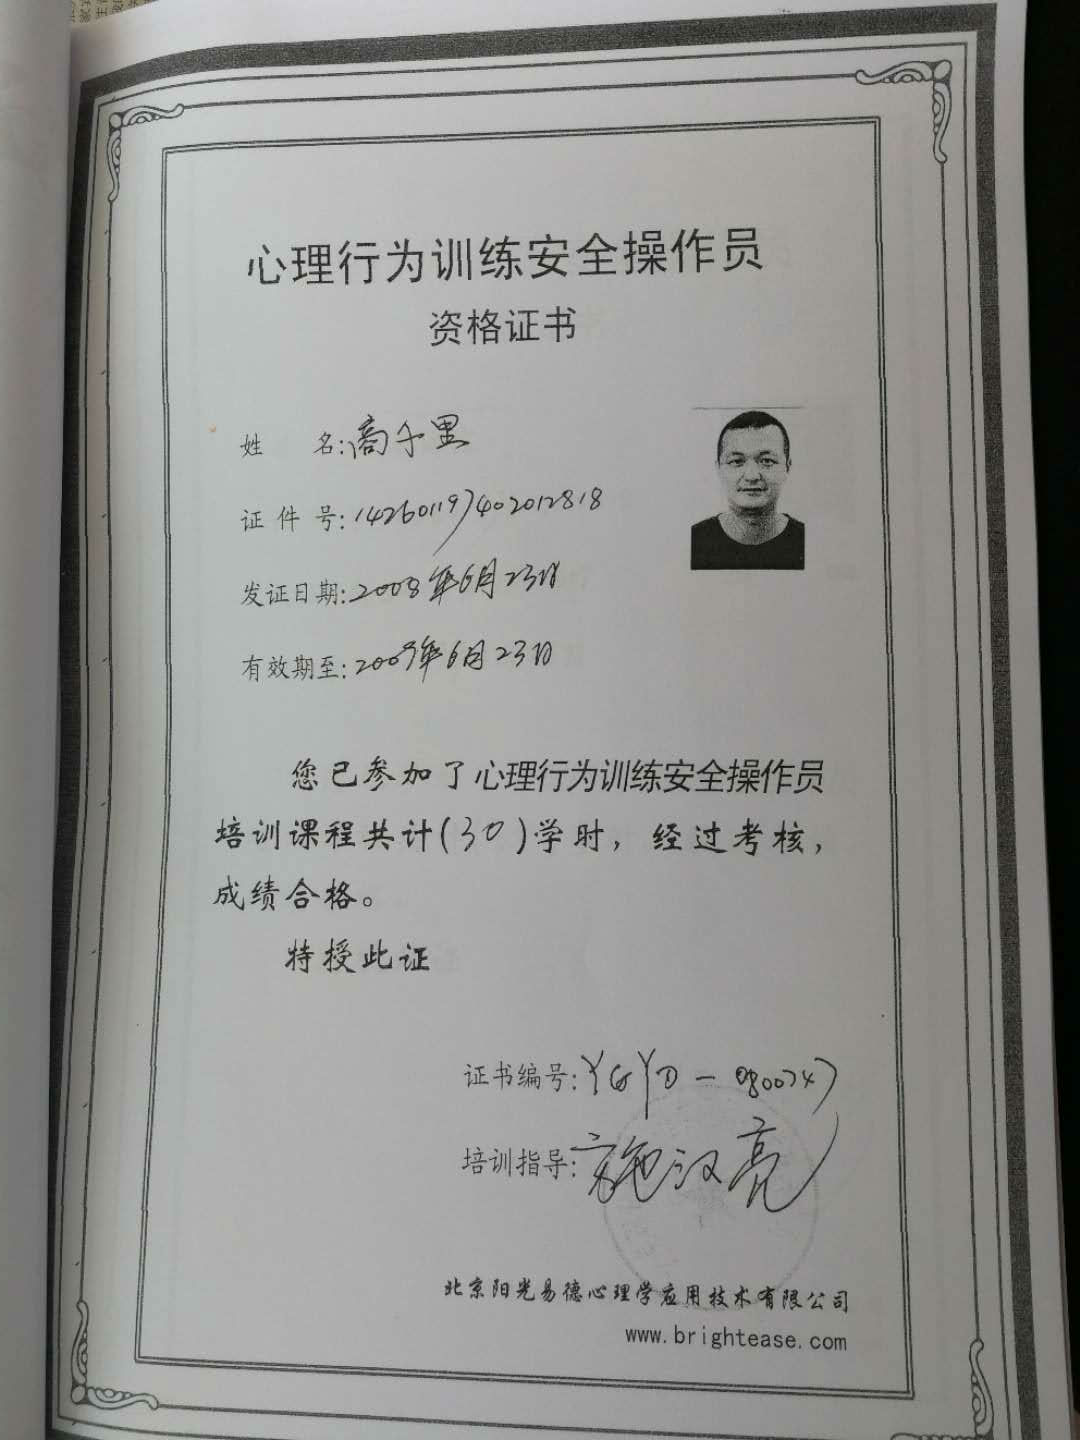 心理行为训练安全操作员
资格证书
姓 名:高千里
证件号:142601197402012818
发证日期:2008年6月23日
有效期至:2009年6月23日
您已参加了心理行为训练安全操作员
培训课程共计(30)学时，经过考核，
成绩合格。
特授此证
证书编号:YGYD-0800747
培训指导:施汉亮
北京阳光易德心理学应用技术有限公司
www.brightease.com